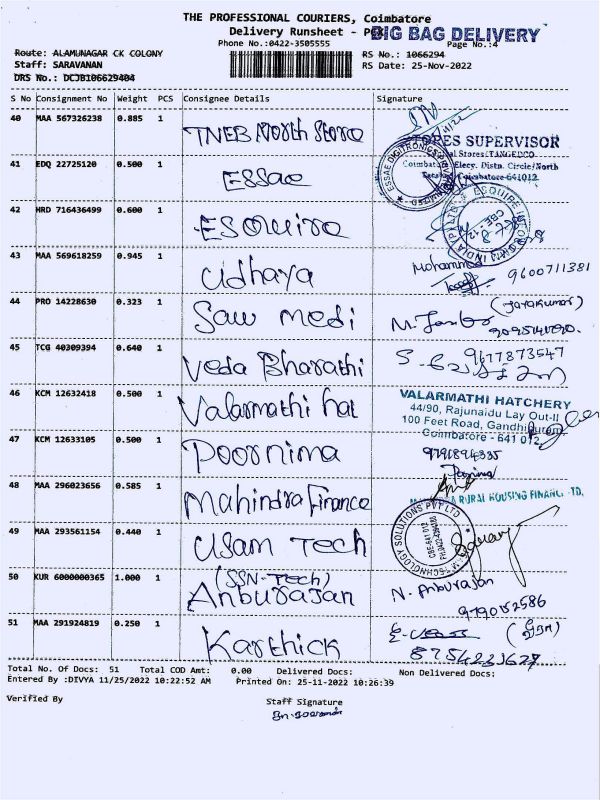 THE PROFESSIONAL COURIERS, Coimbatore
Delivery Runsheet - POD
BIG BAG DELIVERY
Phone No.:0422-3505555
Page No.:4
Route: ALAMUNAGAR CK COLONY
RS No.: 1066294
Staff: SARAVANAN
RS Date: 25-Nov-2022
DRS No.: DCJB106629404
S No Consignment No Weight PCS Consignee Details Signature
40 MAA 567326238 0.885 1 TNEB North Store
STORES SUPERVISOR
Coimbatore Elecy. Distn. Circle/North
Coimbatore 641012
41 EDQ 22725120 0.500 1 Essae
ESSAE DIGITRONICS
42 HRD 716436499 0.600 1 Esquire
CBE-12
43 MAA 569618259 0.945 1 Udhaya
Mohammed
9600711381
44 PRO 14228630 0.323 1 Saw medi
(Jayakumar)
45 TCG 40309394 0.640 1 Veda Bharathi
9677873547
46 KCM 12632418 0.500 1 Valarmathi hat
VALARMATHI HATCHERY
44/90, Rajunaidu Lay Out-II
100 Feet Road, Gandhipuram
Coimbatore - 641 012
47 KCM 12633105 0.500 1 Poornima
9791894335
48 MAA 296023656 0.585 1 Mahindra Finance
RURAL HOUSING FINANCE LTD.
49 MAA 293561154 0.440 1 Usam Tech
TECHNOLOGY SOLUTIONS PVT LTD
CBE-641 012
50 KUR 6000000365 1.000 1 (SSN-Tech)
Anburajan
N. Anburajan
9790152586
51 MAA 291924819 0.250 1 Karthick
8754231627
Total No. Of Docs: 51 Total COD Amt: 0.00 Delivered Docs: Non Delivered Docs:
Entered By :DIVYA 11/25/2022 10:22:52 AM Printed On: 25-11-2022 10:26:39
Verified By
Staff Signature